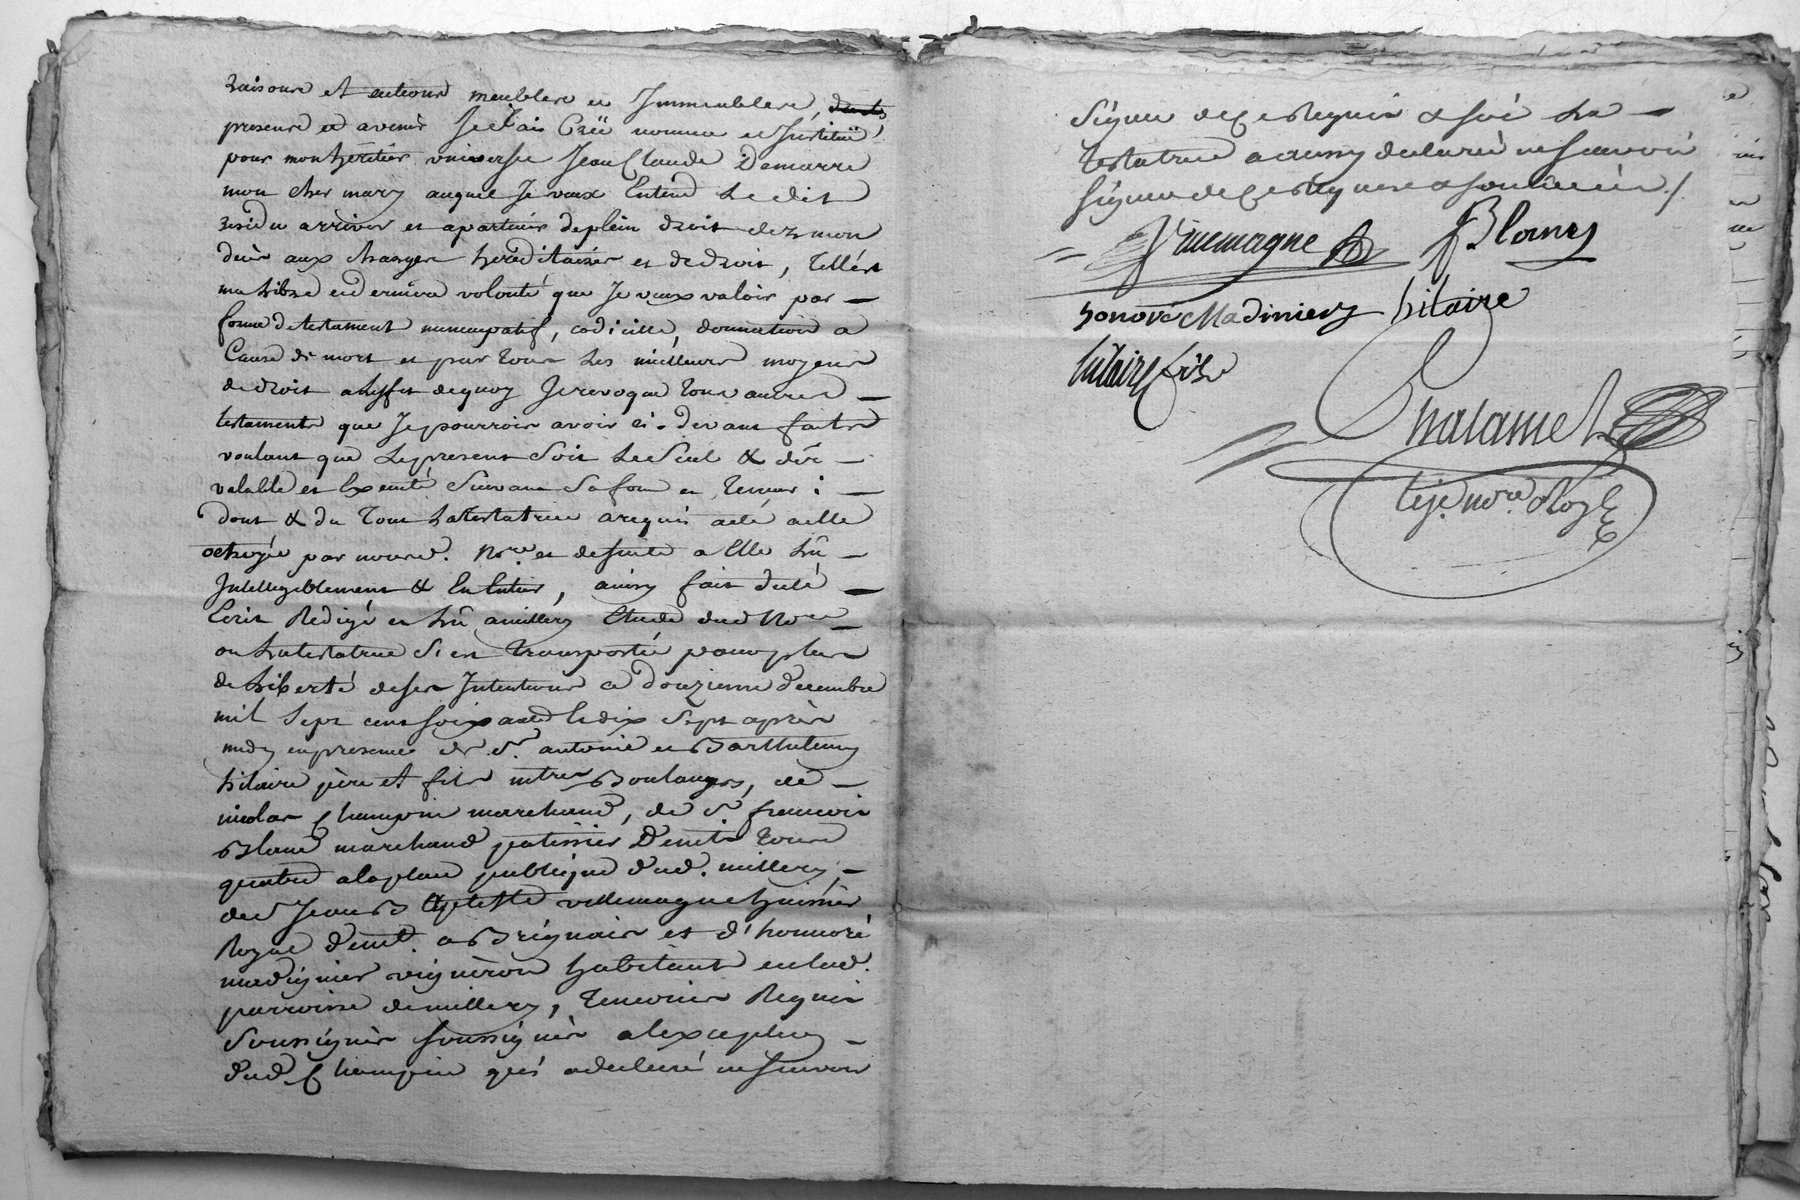 raisons et actions meubles et Immeubles,
presens et avenir Je fais Créé nomme et Institué
pour mon héritier universel Jean Claude Demarre
mon cher mary auquel Je veux Entend Le dit
residu arriver et apartenir de plein droit dez mon
decès aux charges héréditaires et de droit, Telle est
ma libre et derniere volonté que Je veux valoir par
forme de testament nuncupatif, codicille, donnation a
Cause de mort et par tous Les meilleurs moyens
de droit a Leffet de quoy Je revoque tous autres
testaments que Je pourrois avoir ci-devant faits
voulant que Le present Soit Le Seul &
valable et Executé Suivant Sa forme et Teneur :
dont & du Tout La testatrice a requis acte a elle
octroyé par nousd. Nre et de suite a Elle Lû
Intelligiblement & En Entier, ainsy fait
Ecrit Redigé et Lû a millery Etude dud Nore
ou La testatrice S'est Transportée pour plus
de Liberté de ses Intentions ce douzieme decembre
mil Sept cent soixante & dix Sept après
midy en presence de Sr antoine et Barthelemy
hilaire père et fils mtres Boulangers, de
nicolas Champin marchand, de Sr francois
Blanc marchand patissier Demts Tous
quatre a la place publique dud. millery,
de Sr Jean B villemagne huissier
Royal demt. a Brignais et d'honnoré
madignier vigneron habitant en lad.
parroisse de millery, Temoins Requis
Soussignés Soussignés a lexception
dud Champin qui a declaré ne Scavoir
Signer de ce Requis & Soi La
Testatrice a aussy declaré ne Scavoir
Signer de ce Requise &
Villemagne Blanc
honoré Madiniery hilaire
hilaire fils
Chalamel
nore Roy